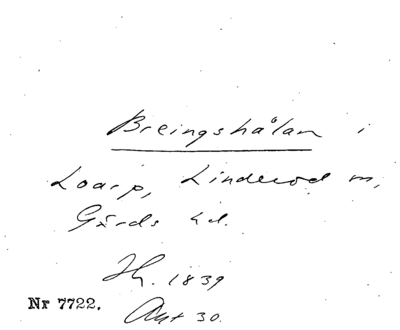 Breingshålan i
Loarp, Linderöd sn,
Gärds hd.
Hh. 1839
Akt 30.
Nr 7722.